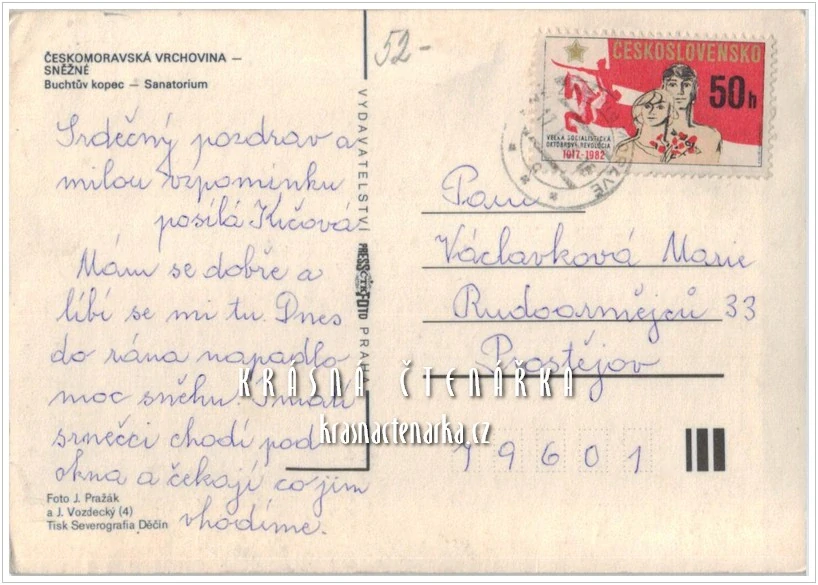 ČESKOMORAVSKÁ VRCHOVINA –
SNĚŽNÉ
Buchtův kopec – Sanatorium
52-
ČESKOSLOVENSKO
50h
VEĽKÁ SOCIALISTICKÁ
OKTÓBROVÁ REVOLÚCIA
1917-1982
Srdečný pozdrav a
milou vzpomínku
posílá Kičová
Mám se dobře a
líbí se mi tu. Dnes
do rána napadlo
moc sněhu.
srnečci chodí pod
okna a čekají co jim
vhodíme.
VYDAVATELSTVÍ PRESSFOTO PRAHA
Paní
Václavková Marie
Rudoarmějců 33
Prostějov
79601
KRÁSNÁ ČTENÁŘKA
krasnactenarka.cz
Foto J. Pražák
a J. Vozdecký (4)
Tisk Severografia Děčín